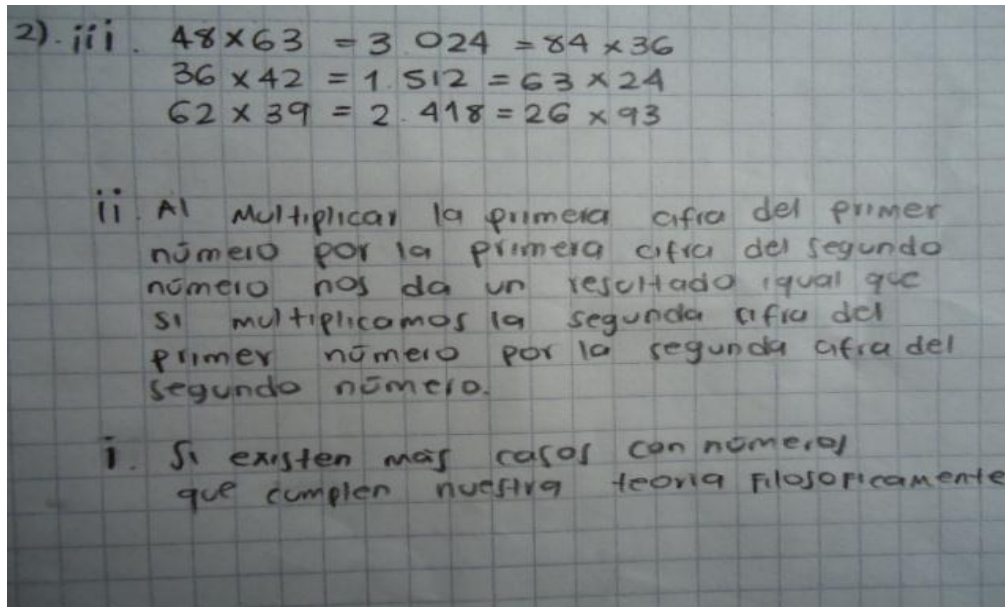 2). iii. 48 × 63 = 3.024 = 84 × 36
36 × 42 = 1.512 = 63 × 24
62 × 39 = 2.418 = 26 × 93
ii. Al Multiplicar la primera cifra del primer
número por la primera cifra del segundo
número nos da un resultado igual que
si multiplicamos la segunda cifra del
primer número por la segunda cifra del
segundo número.
i. Si existen más casos con números
que cumplen nuestra teoria Filosoficamente